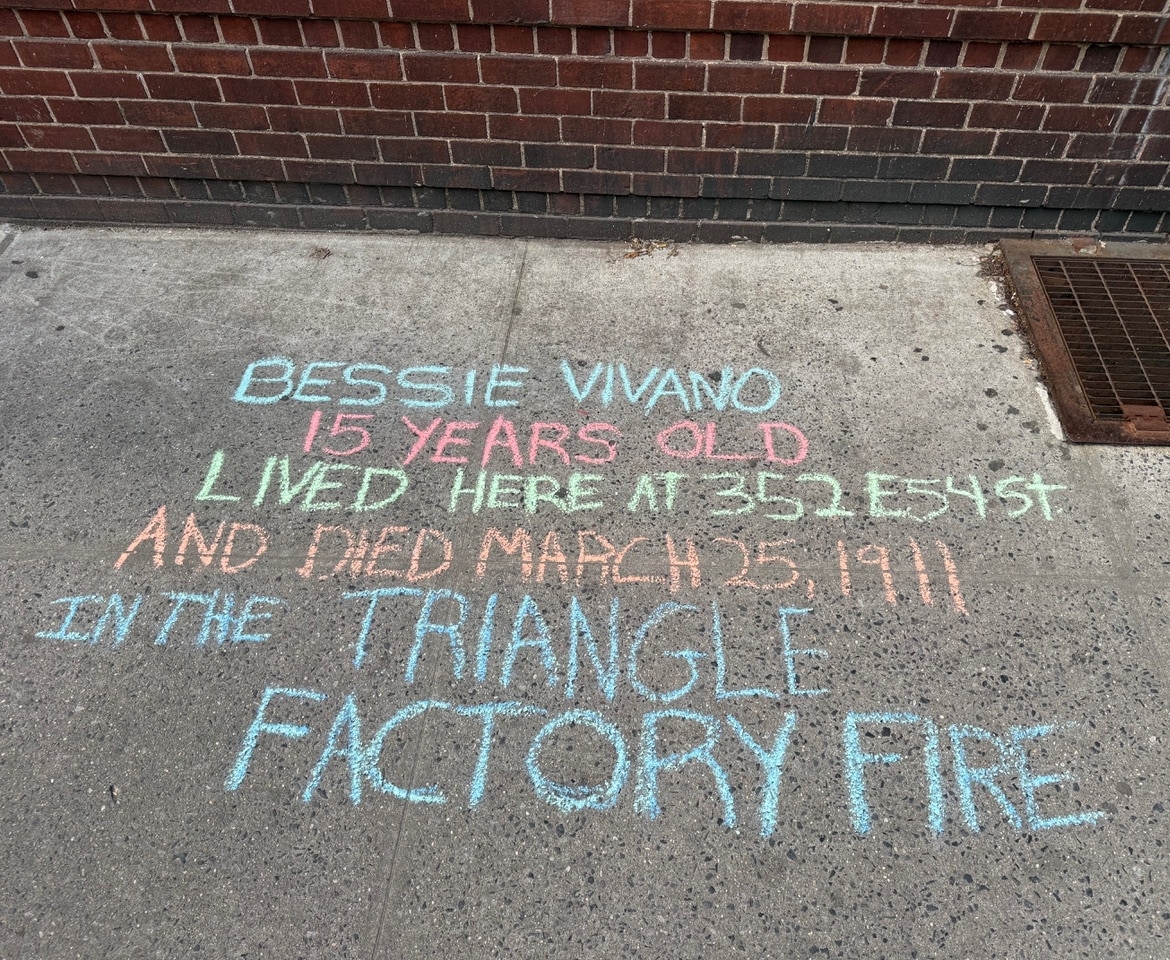 BESSIE VIVANO
15 YEARS OLD
LIVED HERE AT 352 E54St
AND DIED MARCH 25, 1911
IN THE TRIANGLE
FACTORY FIRE